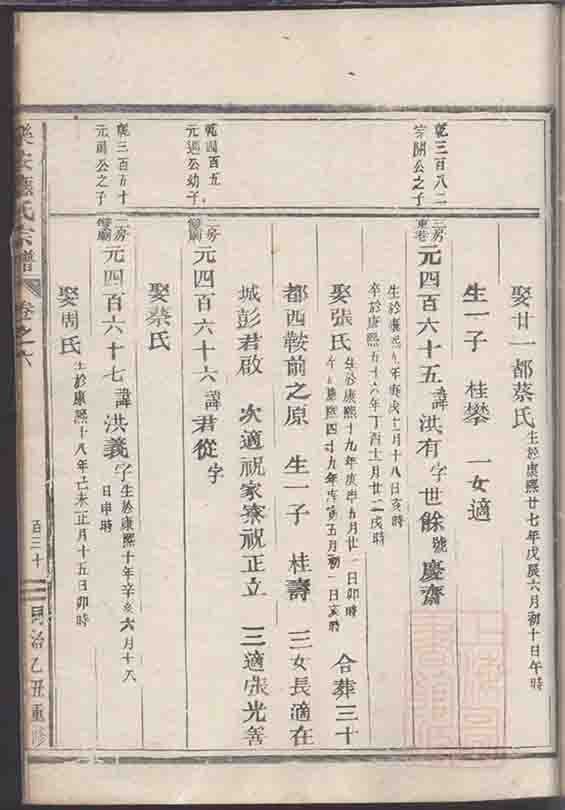 娶廿一都蔡氏 生於康熙廿七年戊辰六月初十日午時
生一子 桂攀 一女適
乾三百八二
公之子
三房
東巷
元四百六十五 諱洪有 字世餘 號慶齋
生於康熙九年庚戌十月十八日亥時
卒於康熙五十六年丁酉十一月廿二戌時
娶張氏 生於康熙十九年庚申五月廿一日卯時
康熙四十九年庚寅五月初一日亥時 合葬三十
都西鞍前之原 生一子 桂壽 三女長適在
城彭君啟 次適祝家寮祝正立 三適張光善
乾四百五
元週公幼子
二房
元四百六十六 諱君從 字
娶蔡氏
乾三百五十
元 公之子
二房
元四百六十七 諱洪義 字 生於康熙十年辛亥六月十八
日申時
娶周氏 生於康熙十八年己未正月十五日卯時
樂安 氏宗譜 卷之六 百三十 同治乙丑重修
上海圖書館藏